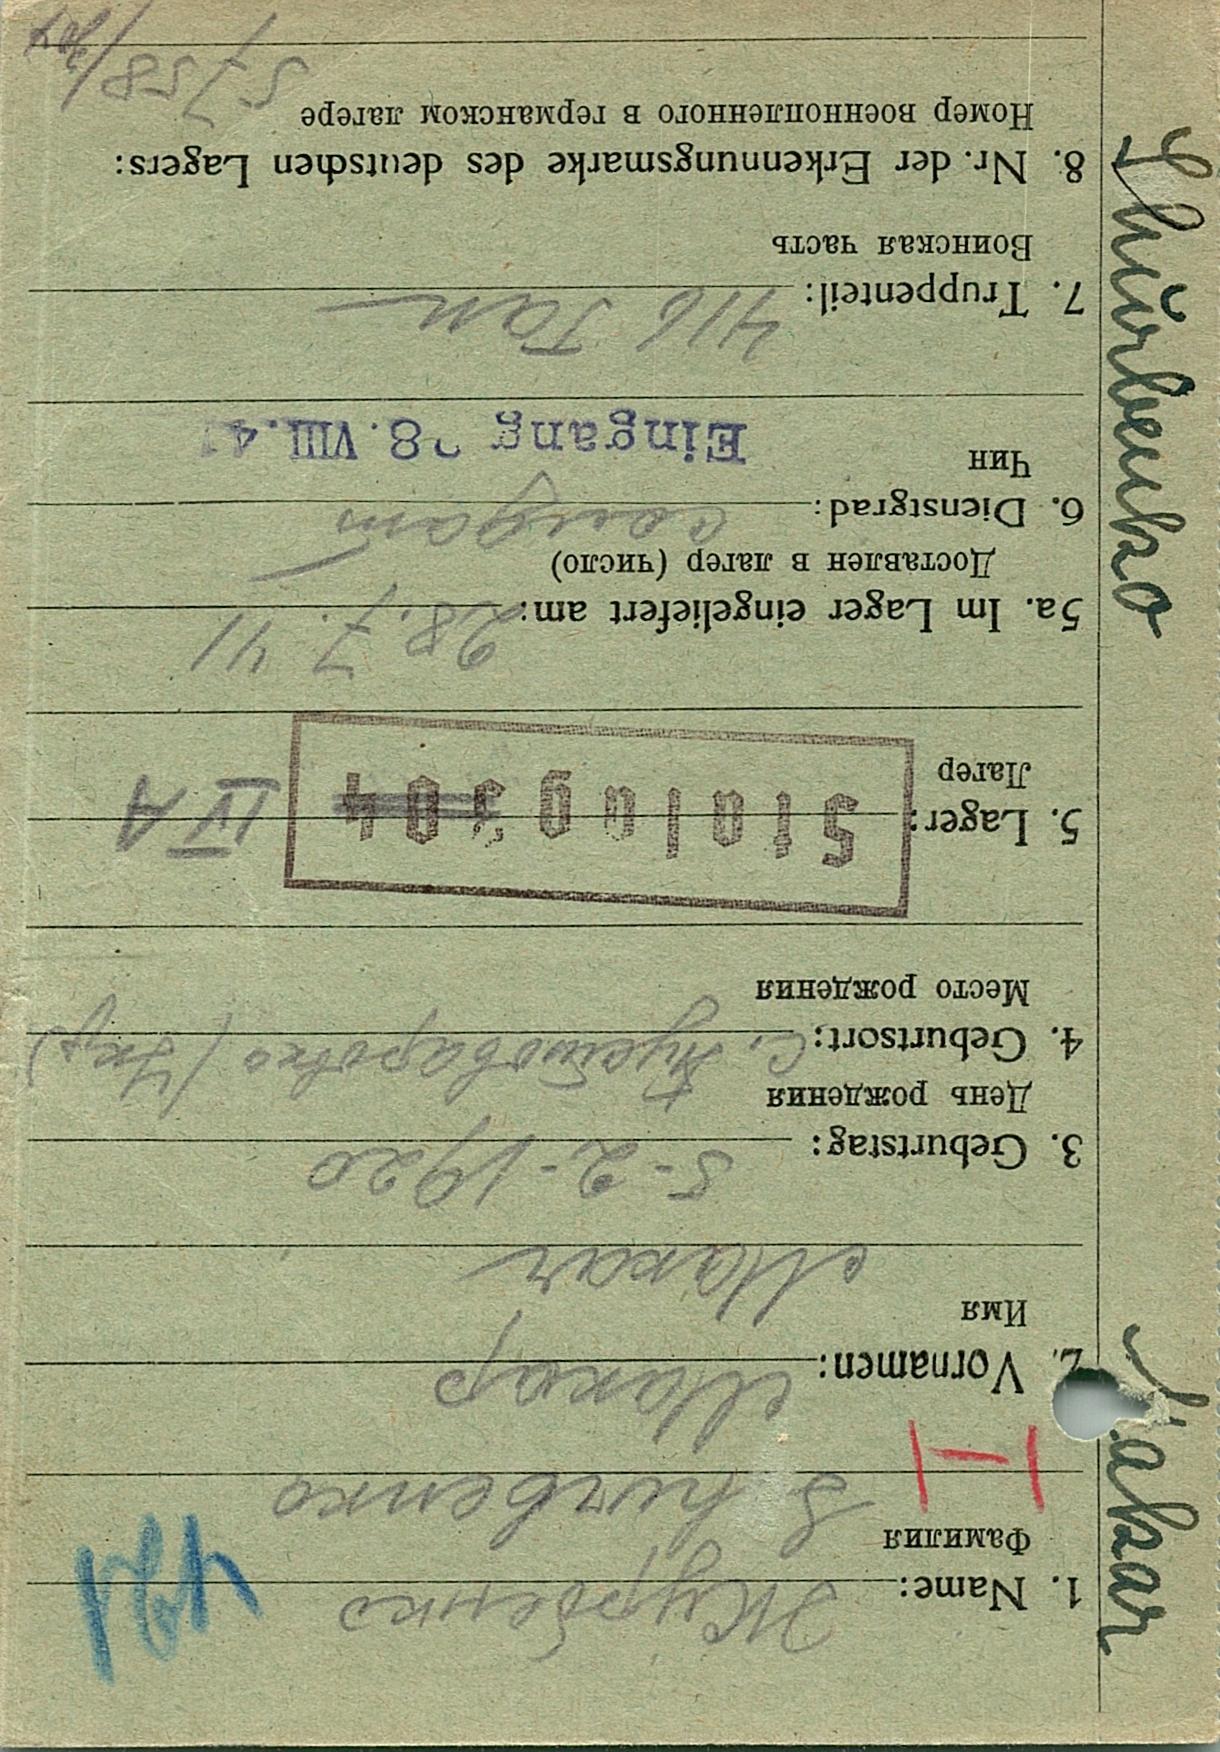 1. Name: Журбенко
Фамилия
Shurbenko
2. Vornamen: Макар
Имя
Makar
3. Geburtstag: 5-2-1920
День рождения
4. Geburtsort: с.
Место рождения
5. Lager: Stalag 304 IV A
Лагер
5a. Im Lager eingeliefert am: 28.7.41
Доставлен в лагер (число)
6. Dienstgrad: солдат
Чин
Eingang 28. VIII. 41
7. Truppenteil: 416
Воинская часть
8. Nr. der Erkennungsmarke des deutschen Lagers:
Номер военнопленного в германском лагере
5758/304
Makar Shurbenko
H